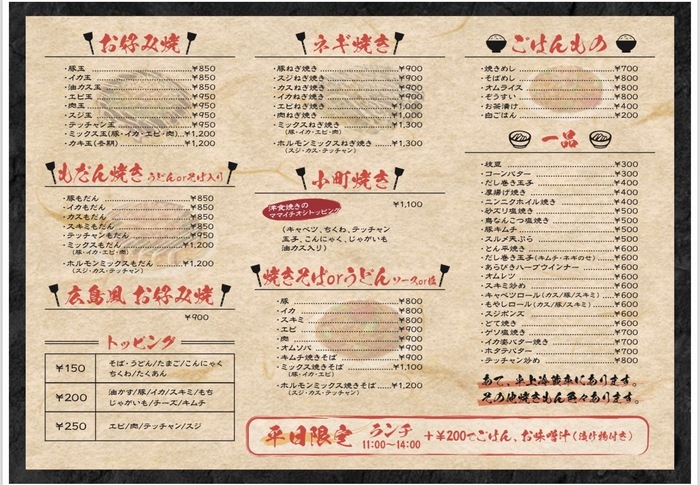 お好み焼
・豚玉 ¥850
・イカ玉 ¥850
・油カス玉 ¥850
・エビ玉 ¥950
・肉玉 ¥950
・スジ玉 ¥950
・テッチャン玉 ¥950
・ミックス玉(豚・イカ・エビ・肉) ¥1,200
・カキ玉(冬期) ¥1,200
もだん焼き うどんorそば入り
・豚もだん ¥850
・イカもだん ¥850
・カスもだん ¥850
・スキミもだん ¥850
・テッチャンもだん ¥950
・ミックスもだん ¥1,200
(豚・イカ・エビ・肉)
・ホルモンミックスもだん ¥1,200
(スジ・カス・テッチャン)
広島風 お好み焼
¥900
トッピング
¥150 そば・うどん/たまご/こんにゃく
ちくわ/たくあん
¥200 油かす/豚/イカ/スキミ/もち
じゃがいも/チーズ/キムチ
¥250 エビ/肉/テッチャン/スジ
ネギ焼き
・豚ねぎ焼き ¥900
・スジねぎ焼き ¥900
・カスねぎ焼き ¥900
・イカねぎ焼き ¥1,000
・エビねぎ焼き ¥1,000
・ミックスねぎ焼き ¥1,300
(豚・イカ・エビ・肉)
・ホルモンミックスねぎ焼き ¥1,300
(スジ・カス・テッチャン)
小町焼き
洋食焼きの
ママイチオシトッピング
¥1,100
(キャベツ、ちくわ、テッチャン
玉子、こんにゃく、じゃがいも
油カス入り)
焼きそばorうどん ソースor塩
・豚 ¥800
・イカ ¥800
・スキミ ¥800
・エビ ¥900
・肉 ¥900
・オムソバ ¥900
・キムチ焼きそば ¥900
・ミックス焼きそば ¥1,200
(豚・イカ・エビ)
・ホルモンミックス焼きそば ¥1,200
(スジ・カス・テッチャン)
ごはんもの
・焼きめし ¥700
・そばめし ¥800
・オムライス ¥800
・ぞうすい ¥800
・お茶漬け ¥400
・白ごはん ¥200
一品
・枝豆 ¥300
・コーンバター ¥300
・だし巻き玉子 ¥400
・厚揚げ焼き ¥400
・ニンニクホイル焼き ¥400
・砂ズリ塩焼き ¥500
・鳥なんこつ塩焼き ¥500
・豚キムチ ¥500
・スルメ天ぷら ¥500
・とん平焼き ¥600
・だし巻き玉子(キムチ・ネギのせ) ¥600
・あらびきハーブウインナー ¥600
・オムレツ ¥600
・スキミ炒め ¥600
・キャベツロール(カス/豚/スキミ) ¥600
・もやしロール(カス/豚/スキミ) ¥600
・スジポンズ ¥600
・どて焼き ¥600
・ゲソ塩焼き ¥600
・イカ姿バター焼き ¥700
・ホタテバター ¥700
・テッチャン炒め ¥800
あて、卓上冷蔵庫にあります。
その他焼きもん色々あります。
平日限定 ランチ
11:00〜14:00
+¥200でごはん、お味噌汁(漬け物付き)